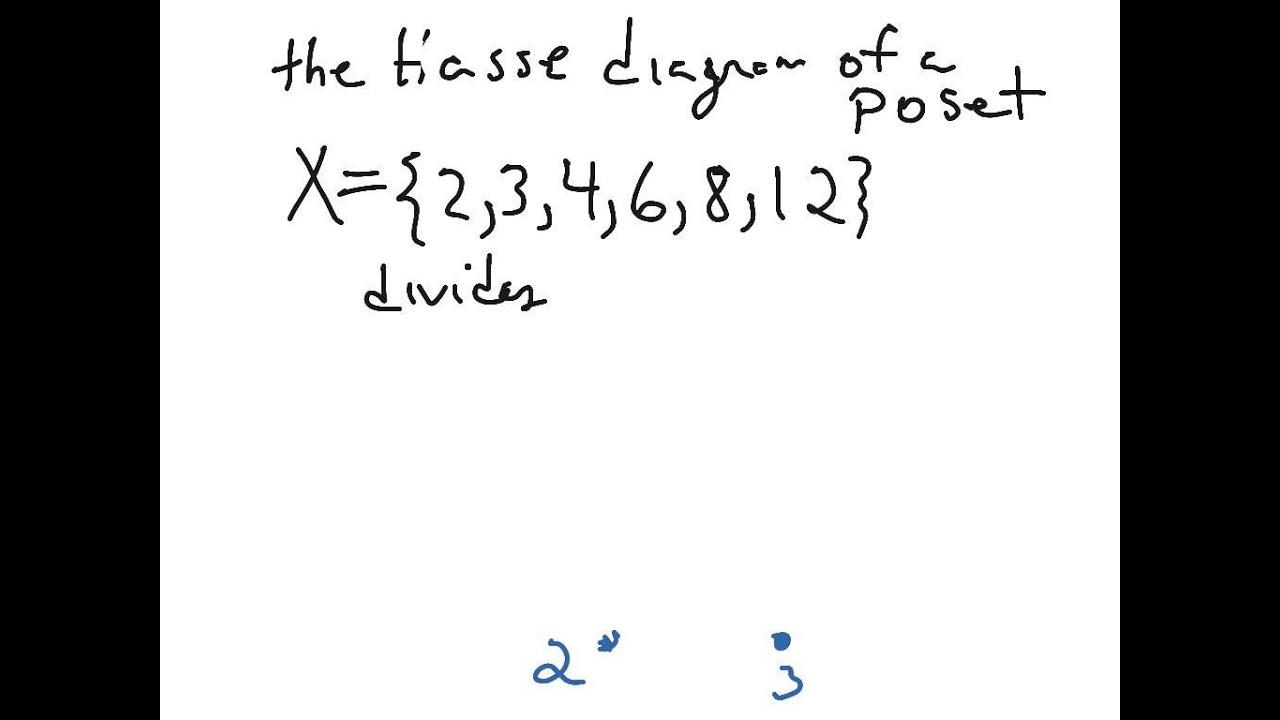 the Hasse diagram of a
poset
X={2,3,4,6,8,12}
divides
2 3